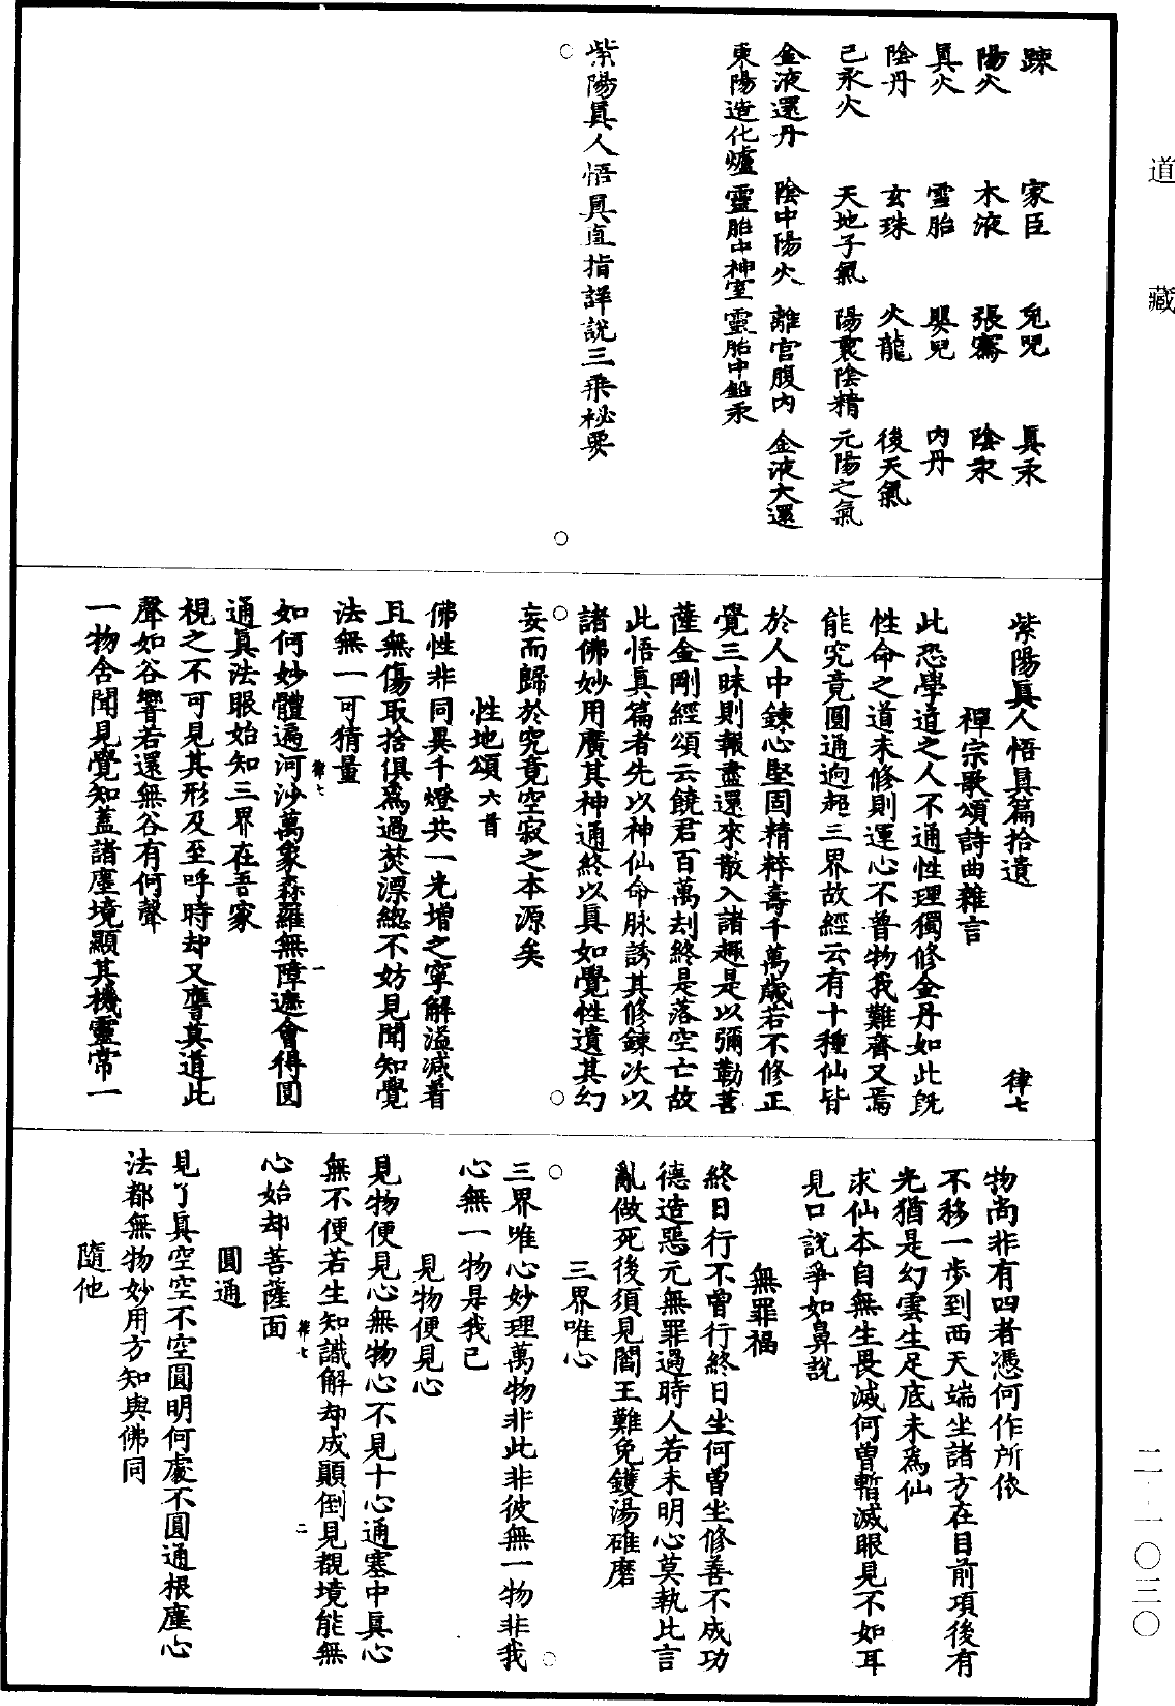 道藏
踈　家臣　兔兒　眞汞
陽火　木液　張騫　陰汞
眞火　雪胎　嬰兒　內丹
陰丹　玄珠　火龍　後天氣
己汞火　天地子氣　陽裏陰精　元陽之氣
金液還丹　陰中陽火　離宮腹內　金液大還
東陽造化爐　靈胎中神室　靈胎中鉛汞
紫陽眞人悟眞直指詳說三乘秘要
紫陽眞人悟眞篇拾遺　律七
禪宗歌頌詩曲雜言
此恐學道之人不通性理獨修金丹如此旣
性命之道未修則運心不普物我難齊又焉
能究竟圓通逈超三界故經云有十種仙皆
於人中鍊心堅固精粹壽千萬歲若不修正
覺三昧則報盡還來散入諸趣是以彌勒菩
薩金剛經頌云饒君百萬刼終是落空亡故
此悟眞篇者先以神仙命脉誘其修鍊次以
諸佛妙用廣其神通終以眞如覺性遺其幻
妄而歸於究竟空寂之本源矣
性地頌六首
佛性非同異千燈共一光增之寧解溢減着
且無傷取捨俱爲過焚漂緫不妨見聞知覺
法無一可猜量
如何妙體遍河沙萬象森羅無障遮會得圓
通眞法眼始知三界在吾家
視之不可見其形及至呼時却又譍莫道此
聲如谷響若還無谷有何聲
一物含聞見覺知蓋諸塵境顯其機靈常一
律七
一
物尚非有四者憑何作所依
不移一步到西天端坐諸方在目前項後有
光猶是幻雲生足底未爲仙
求仙本自無生畏滅何曾暫滅眼見不如耳
見口說爭如鼻說
無罪福
終日行不曾行終日坐何曾坐修善不成功
德造惡元無罪過時人若未明心莫執此言
亂做死後須見閻王難免鑊湯碓磨
三界唯心
三界唯心妙理萬物非此非彼無一物非我
心無一物是我己
見物便見心
見物便見心無物心不見十心通塞中眞心
無不便若生知識解却成顚倒見覩境能無
心始却菩薩面
律七
二
圓通
見了眞空空不空圓明何處不圓通根塵心
法都無物妙用方知與佛同
隨他
二一一〇三〇